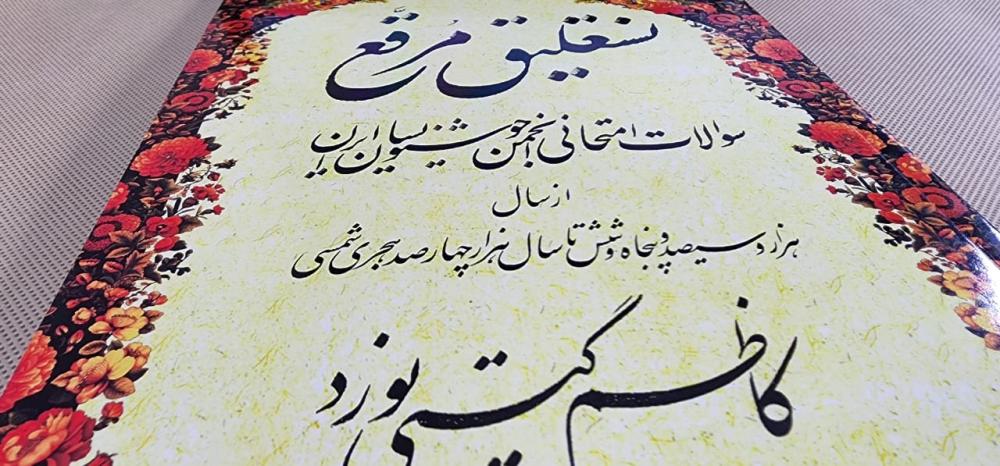 نستعلیق مُرقّع
سوالات امتحانی انجمن خوشنویسان ایران
از سال
هزار و سیصد و پنجاه و شش تا سال هزار چهارصد هجری شمسی
کاظم گیتی نورد